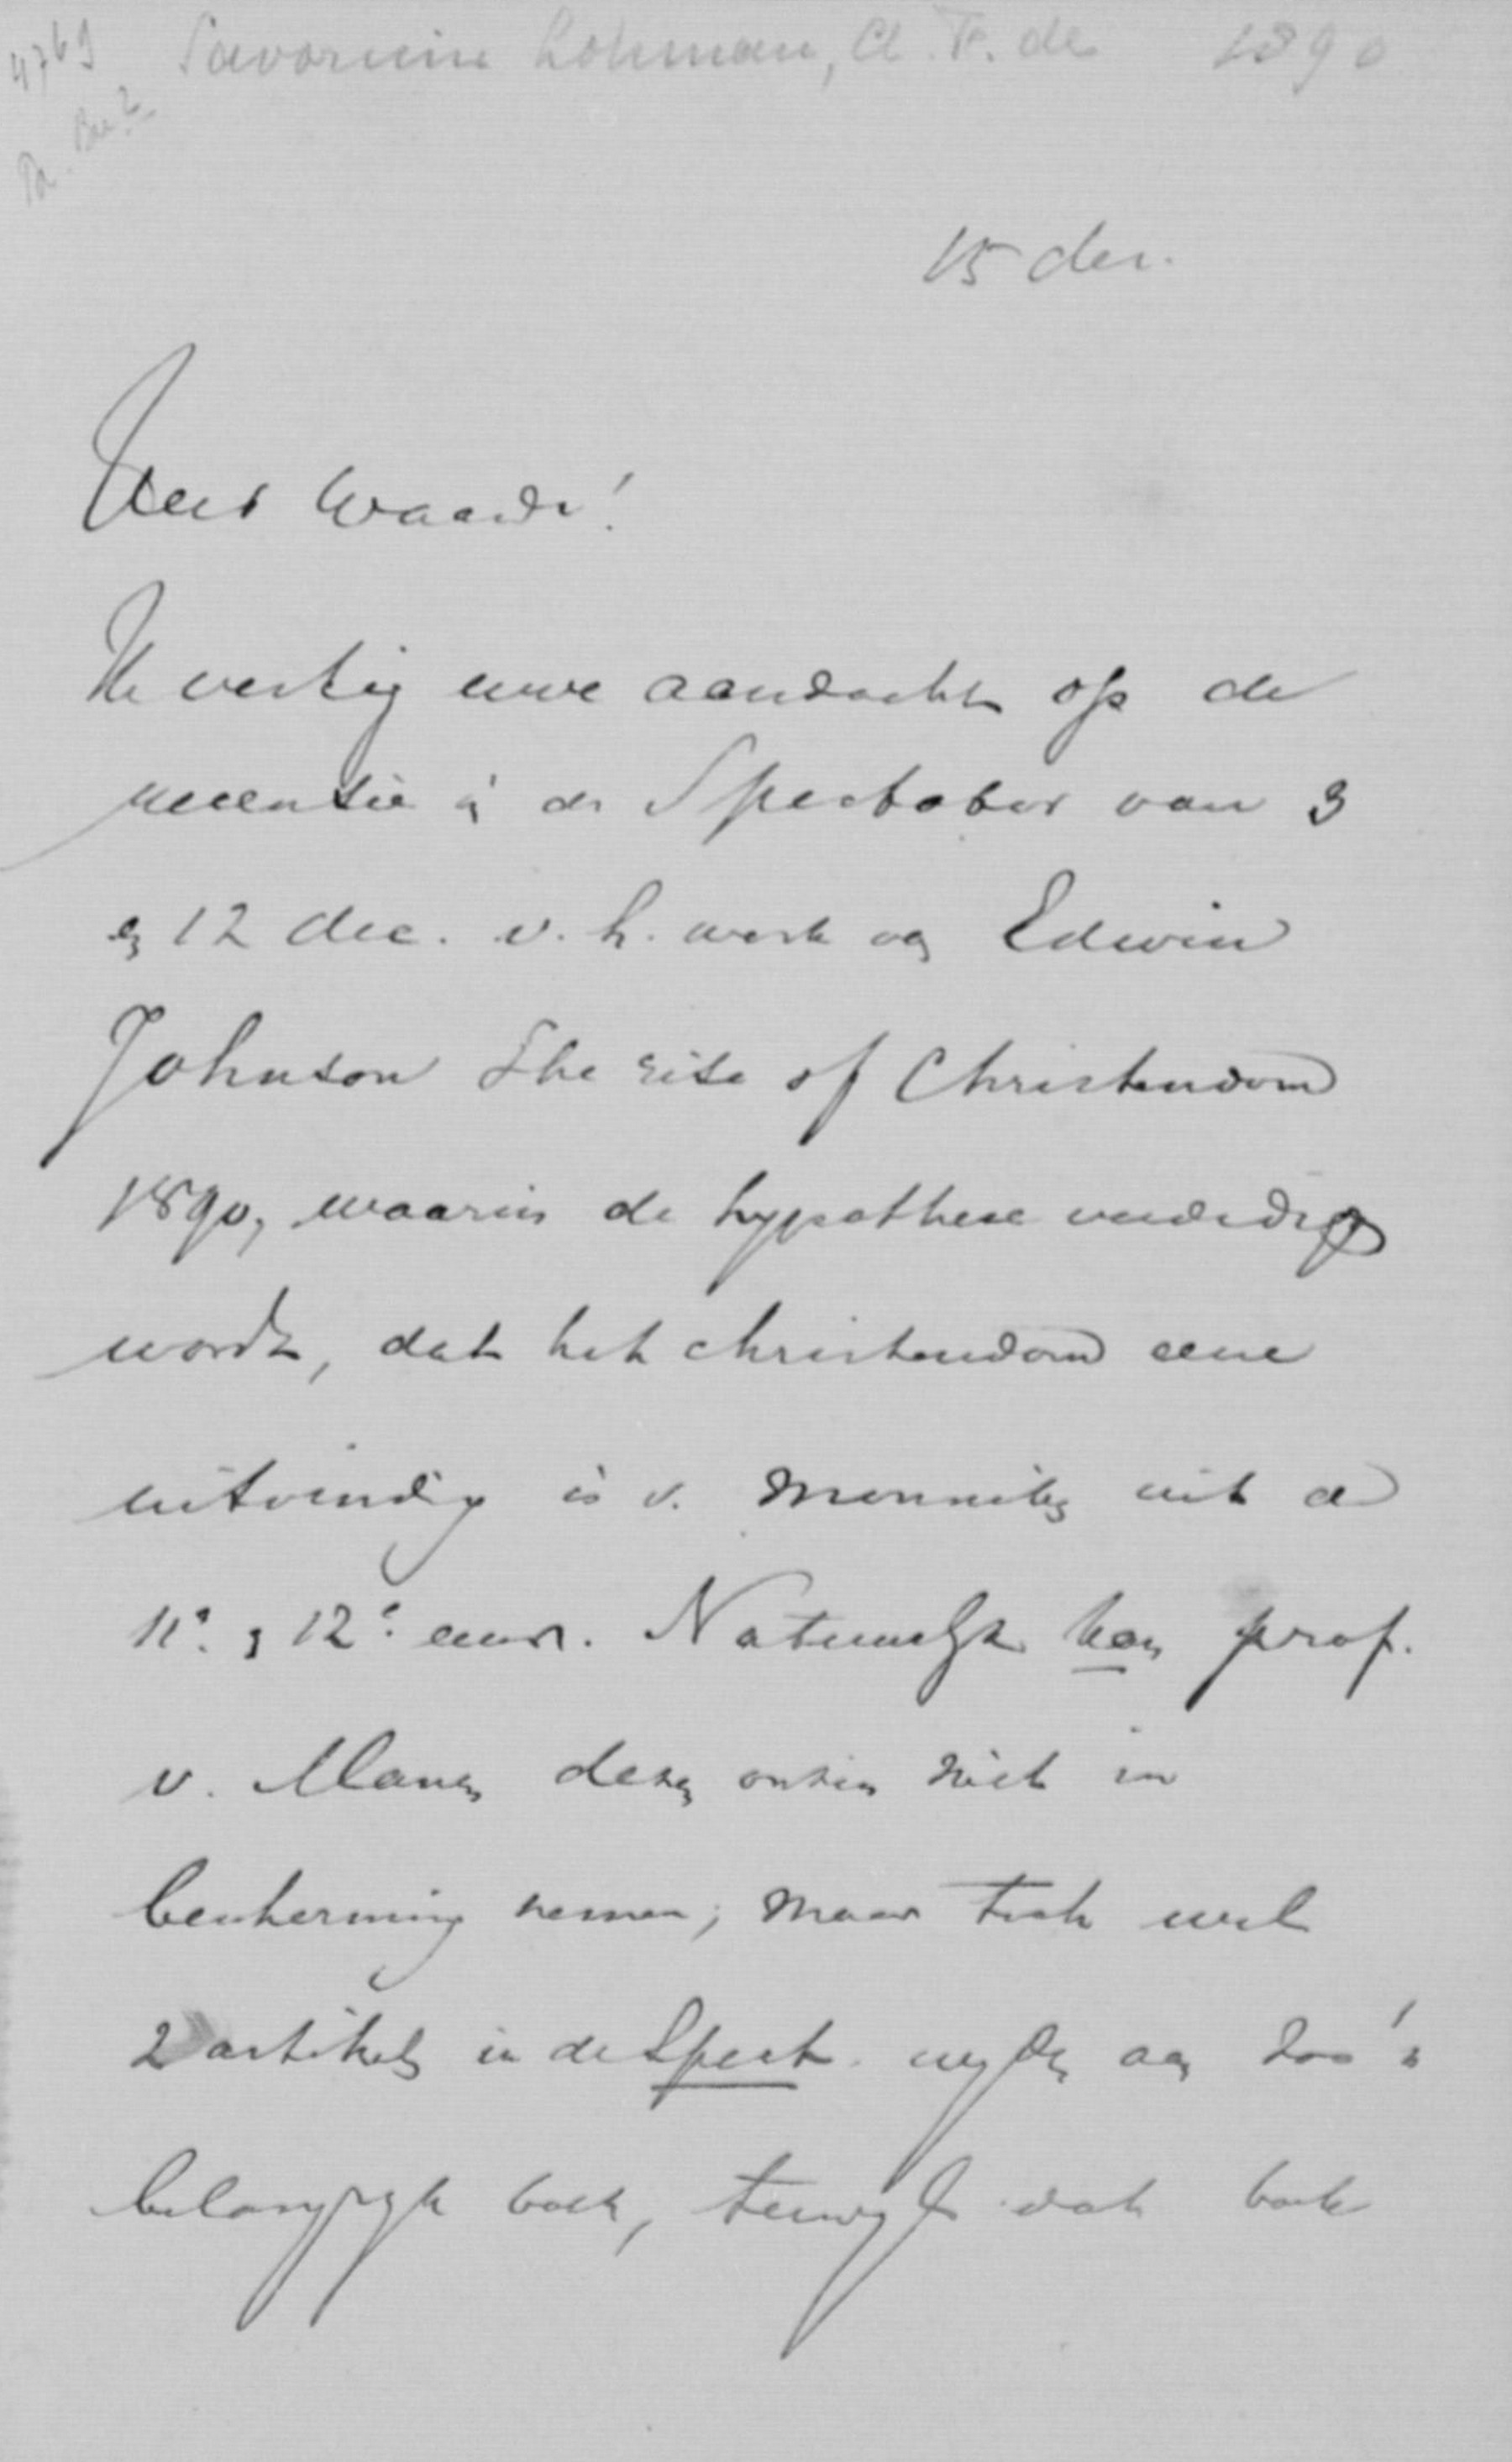 4769
Savornin Lohman, A. F. de 1890
15 dec.
Zeer Waarde!
Ik vestig uwe aandacht op de
recensie i/ de Spectator van 3
en 12 dec. v. h. werk van Edwin
Johnson The rise of Christendom
1890, waarin de hypothese verdedigd
wordt, dat het christendom eene
uitvinding is v. monniken uit de
11e. en 12e. eeuw. Natuurlijk kan prof.
v. Manen dezen onzin niet in
bescherming nemen; maar toch wel
2 artikels in de Spect. wijden aan zoo'n
belangrijk boek, terwijl dat boek